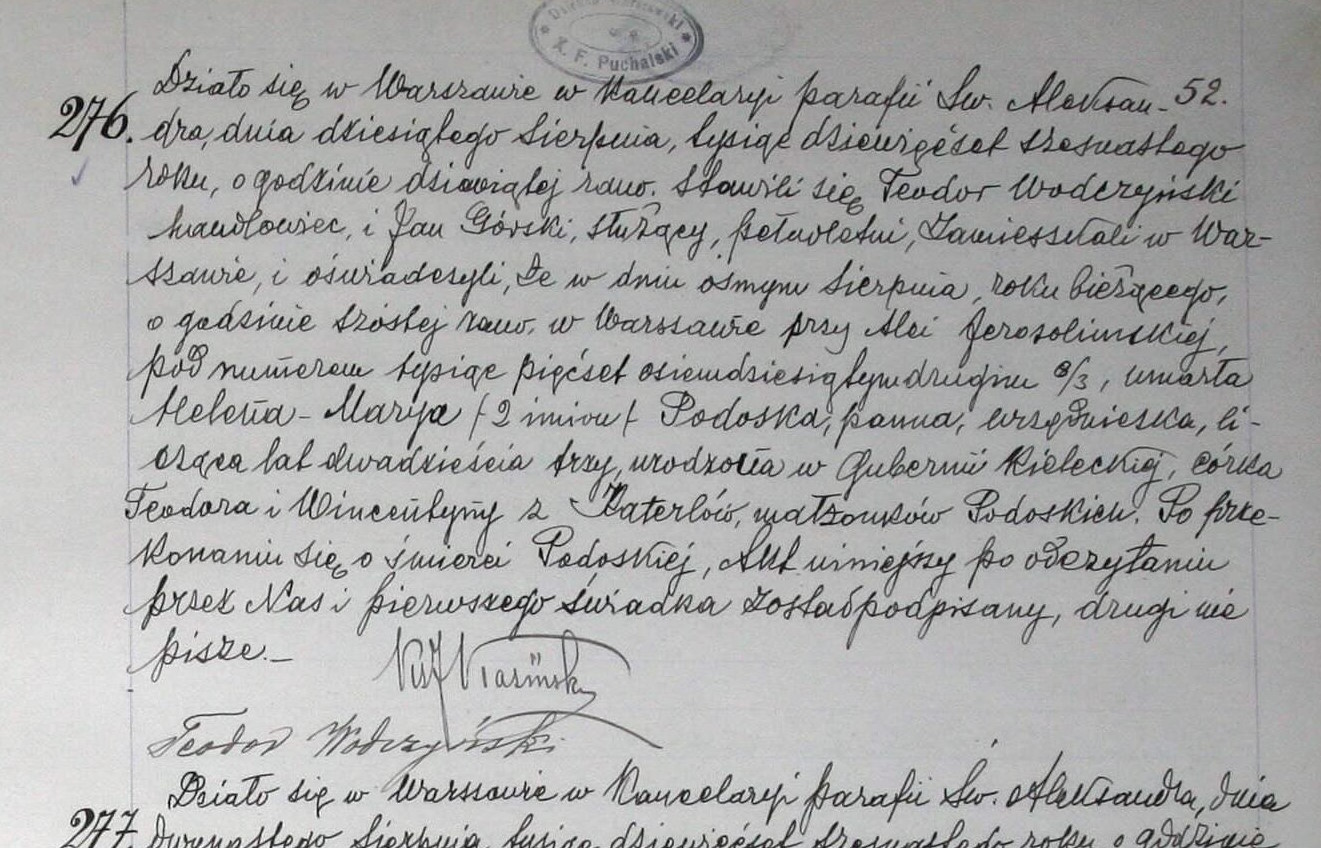 X. F. Puchalski
Działo się w Warszawie w Kancelaryi parafii Św. Aleksan- 52.
276. dra, dnia dziesiątego Sierpnia, tysiąc dziewięćset szesnastego
roku, o godzinie dziewiątej rano. Stawili się Teodor Wodczyński
handlowiec, i Jan Górski, służący, pełnoletni, zamieszkali w War-
szawie, i oświadczyli, że w dniu ósmym Sierpnia, roku bieżącego,
o godzinie szóstej rano, w Warszawie przy Alei Jerozolimskiej,
pod numerem tysiąc pięćset osiemdziesiątym drugim 8/3, umarła
Helena-Marya /2 imion/ Podoska, panna, urzędniczka, li-
cząca lat dwadzieścia trzy, urodzona w Gubernii Kieleckiej, córka
Teodora i Wincentyny z Katerlów, małżonków Podoskich. Po prze-
konaniu się o śmierci Podoskiej, Akt niniejszy po odczytaniu
przez Nas i pierwszego świadka został podpisany, drugi nie
pisze.-
Teodor Wodczyński
Działo się w Warszawie w Kancelaryi parafii Św. Aleksandra, dnia
277. dwunastego Sierpnia, tysiąc dziewięćset szesnastego roku o godzinie